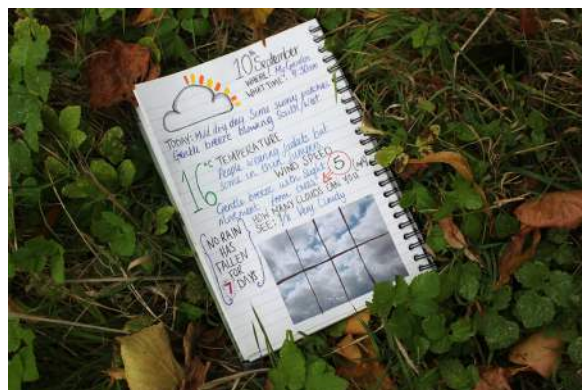 10th September
WHERE? My Garden
WHAT TIME? 9.30am
TODAY: Mild dry day. Some sunny patches
Gentle breeze blowing South West.
16°C TEMPERATURE
People wearing jackets but
some in thin jumpers
WIND SPEED
5
Gentle breeze with slight
movement from trees
HOW MANY CLOUDS CAN YOU
SEE? 7/8 Very Cloudy
(NO RAIN
HAS
FALLEN
FOR
7
DAYS)